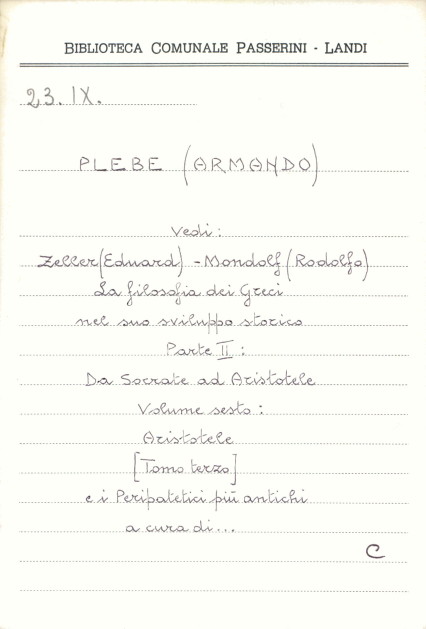 BIBLIOTECA COMUNALE PASSERINI - LANDI
23. IX.
PLEBE (ARMANDO)
Vedi:
Zeller (Eduard) - Mondolf (Rodolfo)
La filosofia dei Greci
nel suo sviluppo storico
Parte II:
Da Socrate ad Aristotele
Volume sesto:
Aristotele
[Tomo terzo]
e i Peripatetici più antichi
a cura di...
C